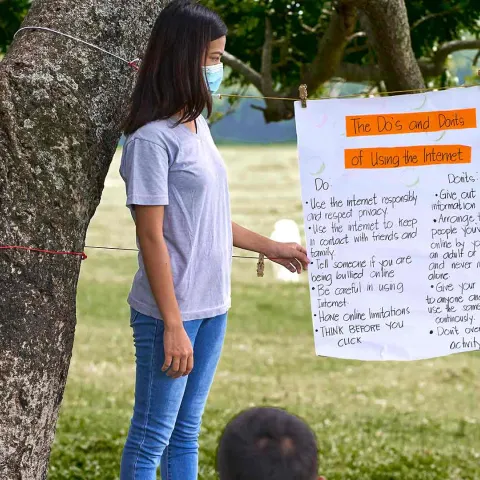 The Do's and Donts
of Using the Internet
Do:
• Use the internet responsibly
and respect privacy.
• Use the internet to keep
in contact with friends and
family.
• Tell someone if you are
being bullied online
• Be careful in using
Internet
• Have online limitations
• THINK BEFORE YOU
CLICK
Donts:
• Give out
information
• Arrange
people you
online by yo
an adult or
and never
alone.
• Give your
to anyone an
use the same
continuously.
• Don't over
activity